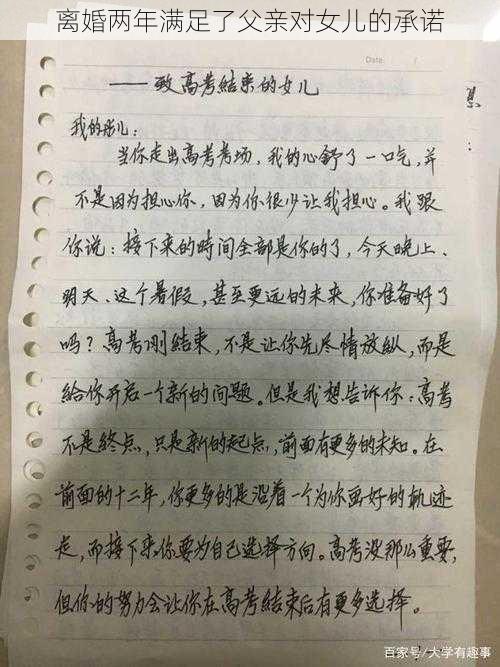 离婚两年满足了父亲对女儿的承诺
——致高考结束的女儿
我的彤儿：
当你走出高考考场，我的心舒了一口气，并
不是因为担心你，因为你很少让我担心。我跟
你说：接下来的时间全部是你的了，今天晚上、
明天、这个暑假，甚至更远的未来，你准备好了
吗？高考刚結束，不是让你先尽情放縱，而是
給你开启一个新的问题。但是我想告诉你：高考
不是終点，只是新的起点，前面有更多的未知。在
前面的十二年，你更多的是沿着一个为你画好的軌迹
走，而接下来，你要为自己选择方向。高考没那么重要，
但你的努力会让你在高考結束后有更多选择。
百家号/大学有趣事